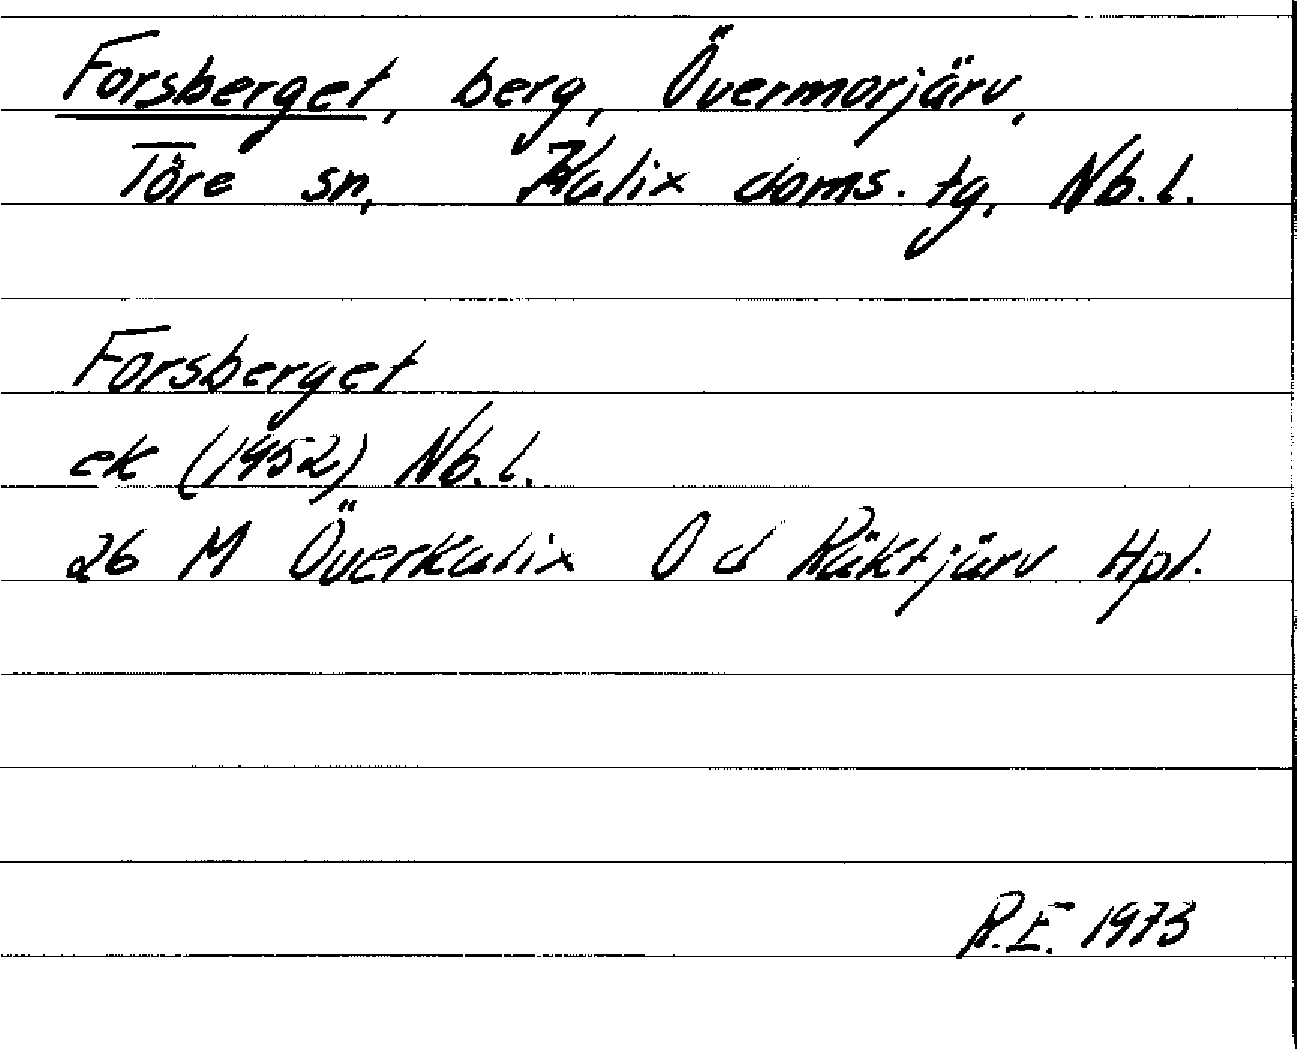 Forsberget, berg, Övermorjärv,
Töre sn, Kalix doms. tg, Nb.l.
Forsberget
ek (1952) Nb.l.
26 M Överkalix 0 d Räktjärv Hpl.
R.E. 1973